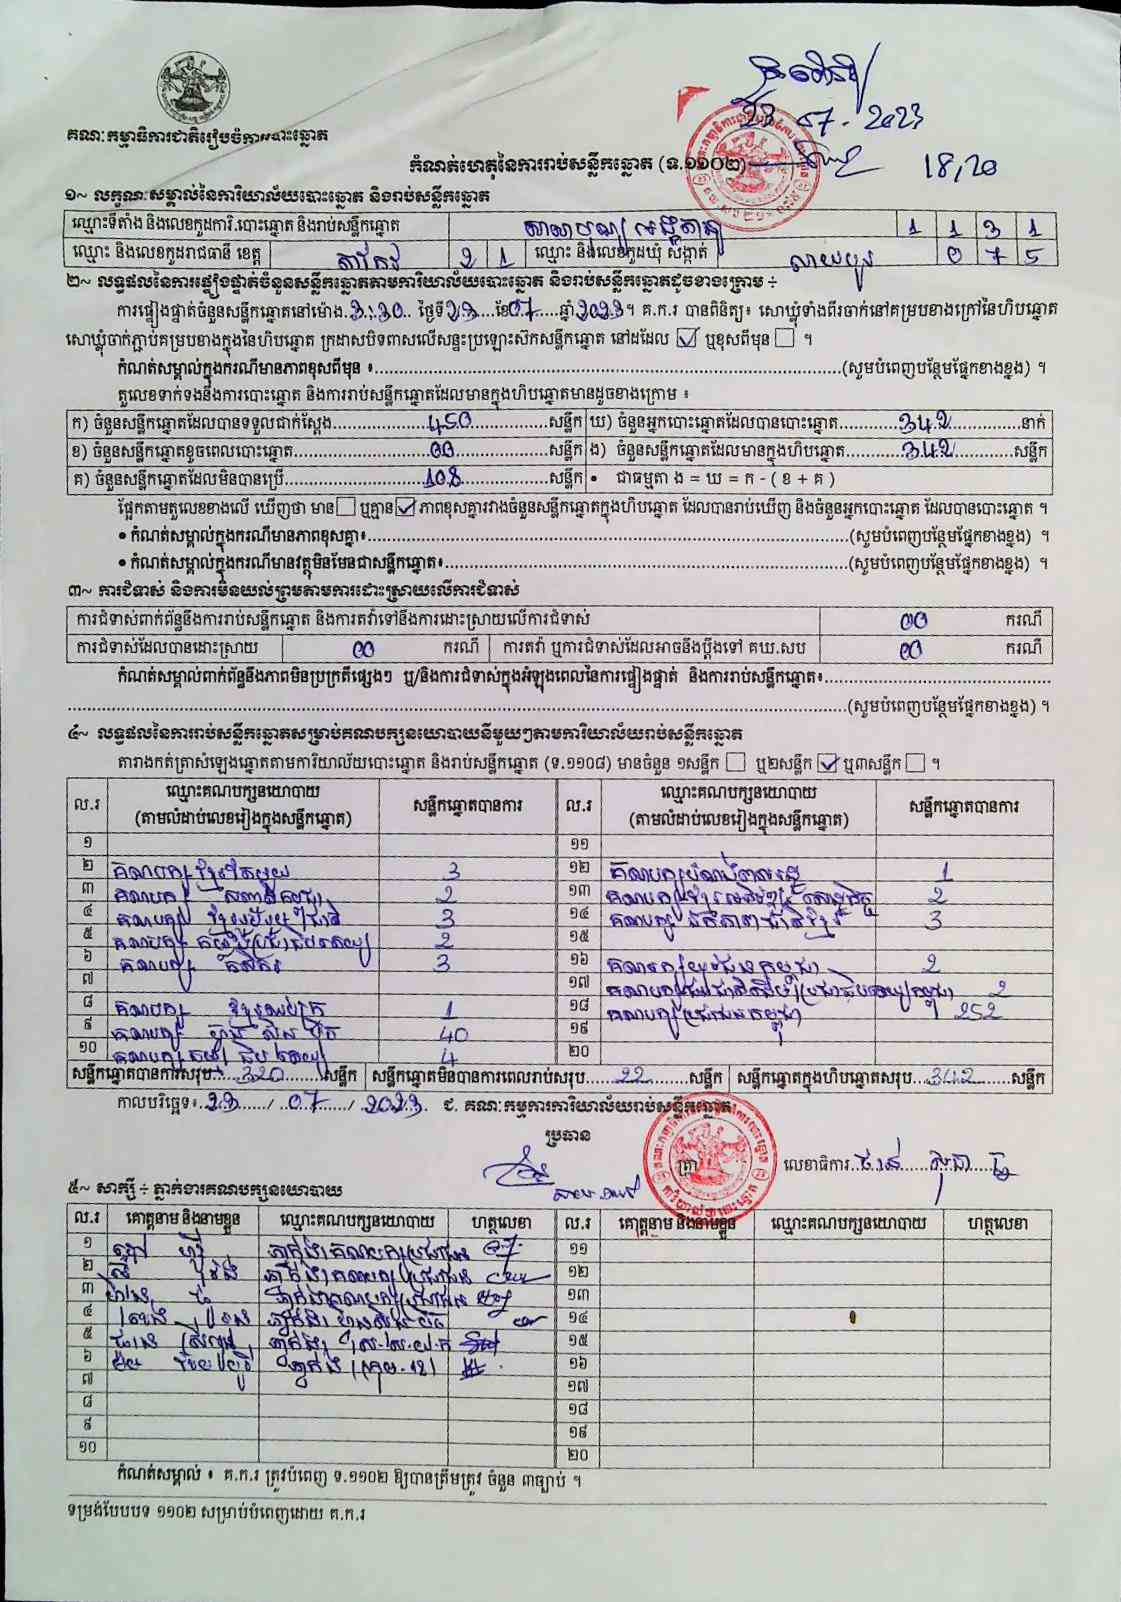 គណៈកម្មាធិការជាតិរៀបចំការបោះឆ្នោត
23-07-2023
កំណត់ហេតុនៃការរាប់សន្លឹកឆ្នោត (ទ.១១០២) 18,20
១~ លក្ខណៈសម្គាល់នៃការិយាល័យបោះឆ្នោត និងរាប់សន្លឹកឆ្នោត
ឈ្មោះទីតាំង និងលេខកូដការិ.បោះឆ្នោត និងរាប់សន្លឹកឆ្នោត 1 1 3 1
ឈ្មោះ និងលេខកូដរាជធានី ខេត្ត តាកែវ 2 1 ឈ្មោះ និងលេខកូដឃុំ សង្កាត់ 0 7 5
២~ លទ្ធផលនៃការផ្ទៀងផ្ទាត់ចំនួនសន្លឹកឆ្នោតតាមការិយាល័យបោះឆ្នោត និងរាប់សន្លឹកឆ្នោតដូចខាងក្រោម ÷
ការផ្ទៀងផ្ទាត់ចំនួនសន្លឹកឆ្នោតនៅម៉ោង 3:30 ថ្ងៃទី 23 ខែ 07 ឆ្នាំ 2023 ។ គ.ក.រ បានពិនិត្យ៖ សោឃ្លុំទាំងពីរចាក់នៅគម្របខាងក្រៅនៃហិបឆ្នោត
សោឃ្លុំចាក់ភ្ជាប់គម្របខាងក្នុងនៃហិបឆ្នោត ក្រដាសបិទពាសលើសន្ទះប្រឡោះស៊កសន្លឹកឆ្នោត នៅដដែល ☑ ឬខុសពីមុន ☐ ។
កំណត់សម្គាល់ក្នុងករណីមានភាពខុសពីមុន ៖ (សូមបំពេញបន្ថែមផ្នែកខាងខ្នង) ។
តួលេខទាក់ទងនឹងការបោះឆ្នោត និងការរាប់សន្លឹកឆ្នោតដែលមានក្នុងហិបឆ្នោតមានដូចខាងក្រោម ៖
ក) ចំនួនសន្លឹកឆ្នោតដែលបានទទួលជាក់ស្តែង 450 សន្លឹក ឃ) ចំនួនអ្នកបោះឆ្នោតដែលបានបោះឆ្នោត 342 នាក់
ខ) ចំនួនសន្លឹកឆ្នោតខូចពេលបោះឆ្នោត 00 សន្លឹក ង) ចំនួនសន្លឹកឆ្នោតដែលមានក្នុងហិបឆ្នោត 342 សន្លឹក
គ) ចំនួនសន្លឹកឆ្នោតដែលមិនបានប្រើ 108 សន្លឹក • ជាធម្មតា ង = ឃ = ក - ( ខ + គ )
ផ្អែកតាមតួលេខខាងលើ ឃើញថា មាន ☐ ឬគ្មាន ☑ ភាពខុសគ្នារវាងចំនួនសន្លឹកឆ្នោតក្នុងហិបឆ្នោត ដែលបានរាប់ឃើញ និងចំនួនអ្នកបោះឆ្នោត ដែលបានបោះឆ្នោត ។
• កំណត់សម្គាល់ក្នុងករណីមានភាពខុសគ្នា៖ (សូមបំពេញបន្ថែមផ្នែកខាងខ្នង) ។
• កំណត់សម្គាល់ក្នុងករណីមានវត្ថុមិនមែនជាសន្លឹកឆ្នោត៖ (សូមបំពេញបន្ថែមផ្នែកខាងខ្នង) ។
៣~ ការជំទាស់ និងការមិនយល់ព្រមតាមការដោះស្រាយលើការជំទាស់
ការជំទាស់ពាក់ព័ន្ធនឹងការរាប់សន្លឹកឆ្នោត និងការតវ៉ាទៅនឹងការដោះស្រាយលើការជំទាស់ 00 ករណី
ការជំទាស់ដែលបានដោះស្រាយ 00 ករណី ការតវ៉ា ឬការជំទាស់ដែលអាចនឹងប្តឹងទៅ គឃ.សប 00 ករណី
កំណត់សម្គាល់ពាក់ព័ន្ធនឹងភាពមិនប្រក្រតីផ្សេងៗ ឬ/និងការជំទាស់ក្នុងអំឡុងពេលនៃការផ្ទៀងផ្ទាត់ និងការរាប់សន្លឹកឆ្នោត៖
(សូមបំពេញបន្ថែមផ្នែកខាងខ្នង) ។
៤~ លទ្ធផលនៃការរាប់សន្លឹកឆ្នោតសម្រាប់គណបក្សនយោបាយនីមួយៗតាមការិយាល័យរាប់សន្លឹកឆ្នោត
តារាងកត់ត្រាសំឡេងឆ្នោតតាមការិយាល័យបោះឆ្នោត និងរាប់សន្លឹកឆ្នោត (ទ.១១០៨) មានចំនួន ១សន្លឹក ☐ ឬ២សន្លឹក ☑ ឬ៣សន្លឹក ☐ ។
ល.រ ឈ្មោះគណបក្សនយោបាយ (តាមលំដាប់លេខរៀងក្នុងសន្លឹកឆ្នោត) សន្លឹកឆ្នោតបានការ ល.រ ឈ្មោះគណបក្សនយោបាយ (តាមលំដាប់លេខរៀងក្នុងសន្លឹកឆ្នោត) សន្លឹកឆ្នោតបានការ
១ ១១
២ គណបក្ស ខ្មែរតែមួយ 3 ១២ គណបក្ស 1
៣ គណបក្ស 2 ១៣ គណបក្ស 2
៤ គណបក្ស 3 ១៤ គណបក្ស 3
៥ គណបក្ស 2 ១៥
៦ គណបក្ស កសិករ 3 ១៦ គណបក្ស 2
៧ ១៧ គណបក្ស 2
៨ គណបក្ស 1 ១៨ គណបក្សប្រជាជនកម្ពុជា 252
៩ គណបក្ស ហ៊្វុនស៊ិនប៉ិច 40 ១៩
១០ គណបក្ស 4 ២០
សន្លឹកឆ្នោតបានការសរុប 320 សន្លឹក សន្លឹកឆ្នោតមិនបានការពេលរាប់សរុប 22 សន្លឹក សន្លឹកឆ្នោតក្នុងហិបឆ្នោតសរុប 342 សន្លឹក
កាលបរិច្ឆេទ៖ 23 / 07 / 2023 ជ. គណៈកម្មការការិយាល័យរាប់សន្លឹកឆ្នោត
ប្រធាន
ត្រា លេខាធិការ
៥~ សាក្សី ÷ ភ្នាក់ងារគណបក្សនយោបាយ
ល.រ គោត្តនាម និងនាមខ្លួន ឈ្មោះគណបក្សនយោបាយ ហត្ថលេខា ល.រ គោត្តនាម និងនាមខ្លួន ឈ្មោះគណបក្សនយោបាយ ហត្ថលេខា
១ ភ្នាក់ងារគណបក្សប្រជាជន ១១
២ ភ្នាក់ងារគណបក្សប្រជាជន ១២
៣ ភ្នាក់ងារគណបក្សប្រជាជន ១៣
៤ ភ្នាក់ងារ ១៤
៥ ភ្នាក់ងារ ១៥
៦ ភ្នាក់ងារ ១៦
៧ ១៧
៨ ១៨
៩ ១៩
១០ ២០
កំណត់សម្គាល់ ៖ គ.ក.រ ត្រូវបំពេញ ទ.១១០២ ឱ្យបានត្រឹមត្រូវ ចំនួន ៣ច្បាប់ ។
ទម្រង់បែបបទ ១១០២ សម្រាប់បំពេញដោយ គ.ក.រ